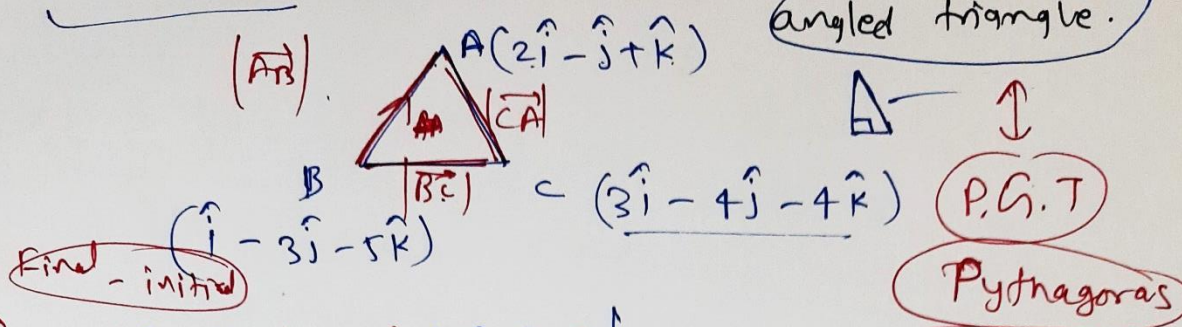 angled triangle.
|AB|.
A(2î - ĵ + k̂)
|CA|
B
|BC|
C (3î - 4ĵ - 4k̂)
P.G.T
(î - 3ĵ - 5k̂)
Final - initial
Pythagoras